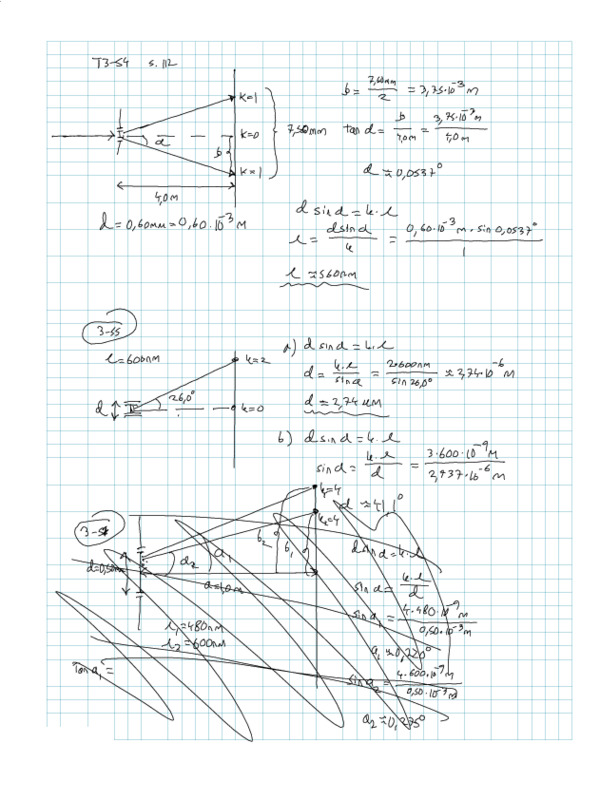 T3-54 s. 112
k=1
k=0
k=1
α
b
7,50mm
4,0m
d = 0,60mm = 0,60·10⁻³ m
b = 7,50mm / 2 = 3,75·10⁻³ m
tan α = b / 4,0m = 3,75·10⁻³ m / 4,0m
α ≈ 0,0537°
d sin α = k·λ
λ = d sin α / k = 0,60·10⁻³ m · sin 0,0537° / 1
λ ≈ 560nm
3-55
λ = 600nm
k=2
26,0°
d
k=0
a) d sin α = k·λ
d = k·λ / sin α = 2·600nm / sin 26,0° ≈ 2,74·10⁻⁶ m
d ≈ 2,74 μm
b) d sin α = k·λ
sin α = k·λ / d = 3·600·10⁻⁹ m / 2,737·10⁻⁶ m
α ≈ 41,1°
k=4
k=4
b₂
b₁
α₂
α₁
d=0,50mm
a=1,0m
λ₁ = 480nm
λ₂ = 600nm
tan α₁ =
d sin α = k·λ
sin α = k·λ / d
sin α₁ = 4·480·10⁻⁹ m / 0,50·10⁻³ m
α₁ ≈ 0,220°
sin α₂ = 4·600·10⁻⁹ m / 0,50·10⁻³ m
α₂ ≈ 0,275°